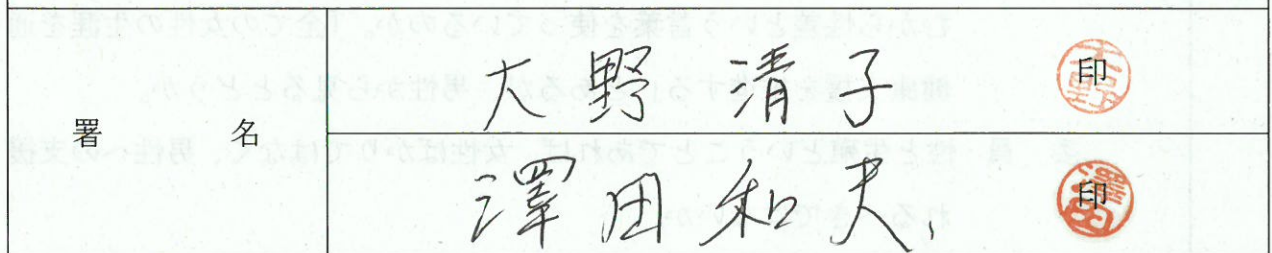 署名
大野清子 印
澤田和夫 印